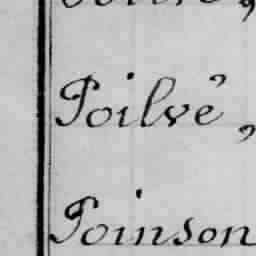 Poilvé,
Poinson